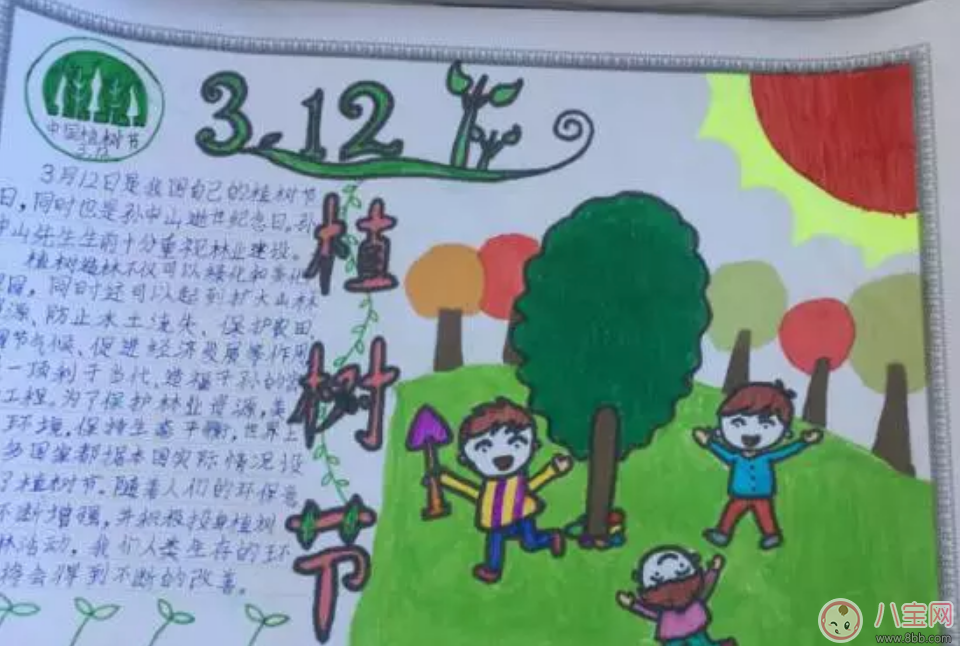 中国植树节
3.12
3.12
植
树
节
3月12日是我国自己的植树节
日,同时也是孙中山逝世纪念日。孙
中山先生生前十分重视林业建设。
植树造林不仅可以绿化和美化
园,同时还可以起到扩大山林
源、防止水土流失、保护农田
节气候、促进经济发展等作用
一项利于当代、造福子孙的
工程。为了保护林业资源,美
环境,保持生态平衡,世界上
多国家都据本国实际情况设
了植树节。随着人们的环保意
不断增强,并积极投身植树
林活动,我们人类生存的环
将会得到不断的改善。
八宝网
www.8bb.com